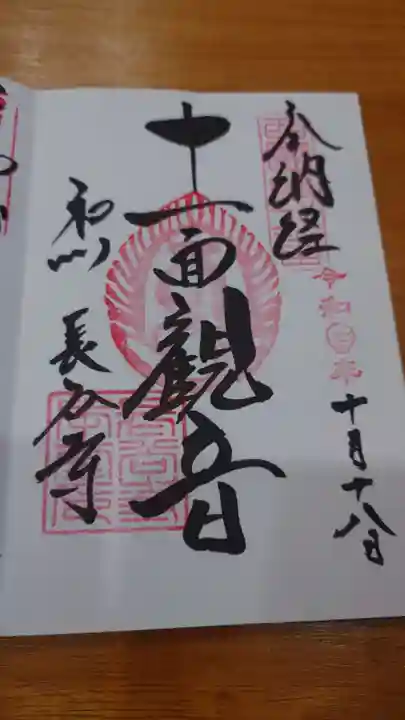 奉納経
令和
年
十月十八日
十一面觀音
和州
長弓寺